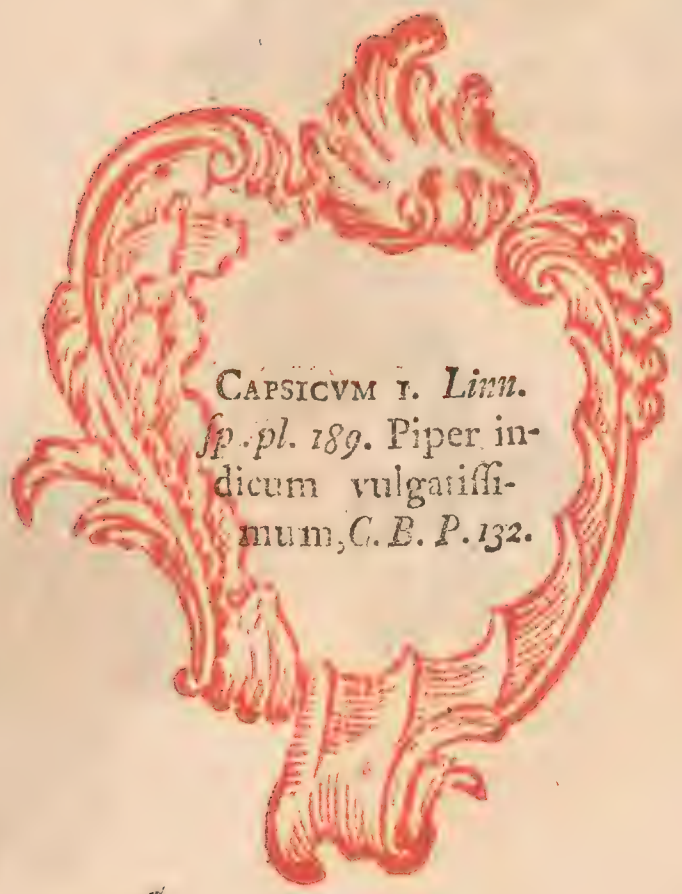 CAPSICVM 1. Linn.
ſp. pl. 189. Piper in-
dicum vulgatiſſi-
mum, C. B. P. 132.